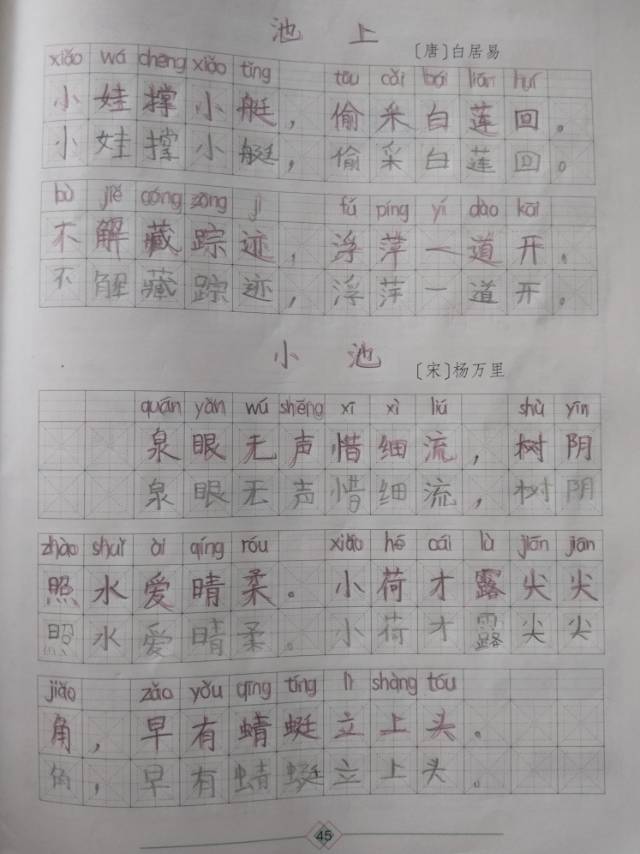 池 上
〔唐〕白居易
xiǎo wá chēng xiǎo tǐng tōu cǎi bái lián huí
小娃撑小艇，偷采白莲回。
小娃撑小艇，偷采白莲回。
bù jiě cáng zōng jì fú píng yí dào kāi
不解藏踪迹，浮萍一道开。
不解藏踪迹，浮萍一道开。
小 池
〔宋〕杨万里
quán yǎn wú shēng xī xì liú shù yīn
泉眼无声惜细流，树阴
泉眼无声惜细流，树阴
zhào shuǐ ài qíng róu xiǎo hé cái lù jiān jiān
照水爱晴柔。小荷才露尖尖
照水爱晴柔。小荷才露尖尖
jiǎo zǎo yǒu qīng tíng lì shàng tóu
角，早有蜻蜓立上头。
角，早有蜻蜓立上头。
45